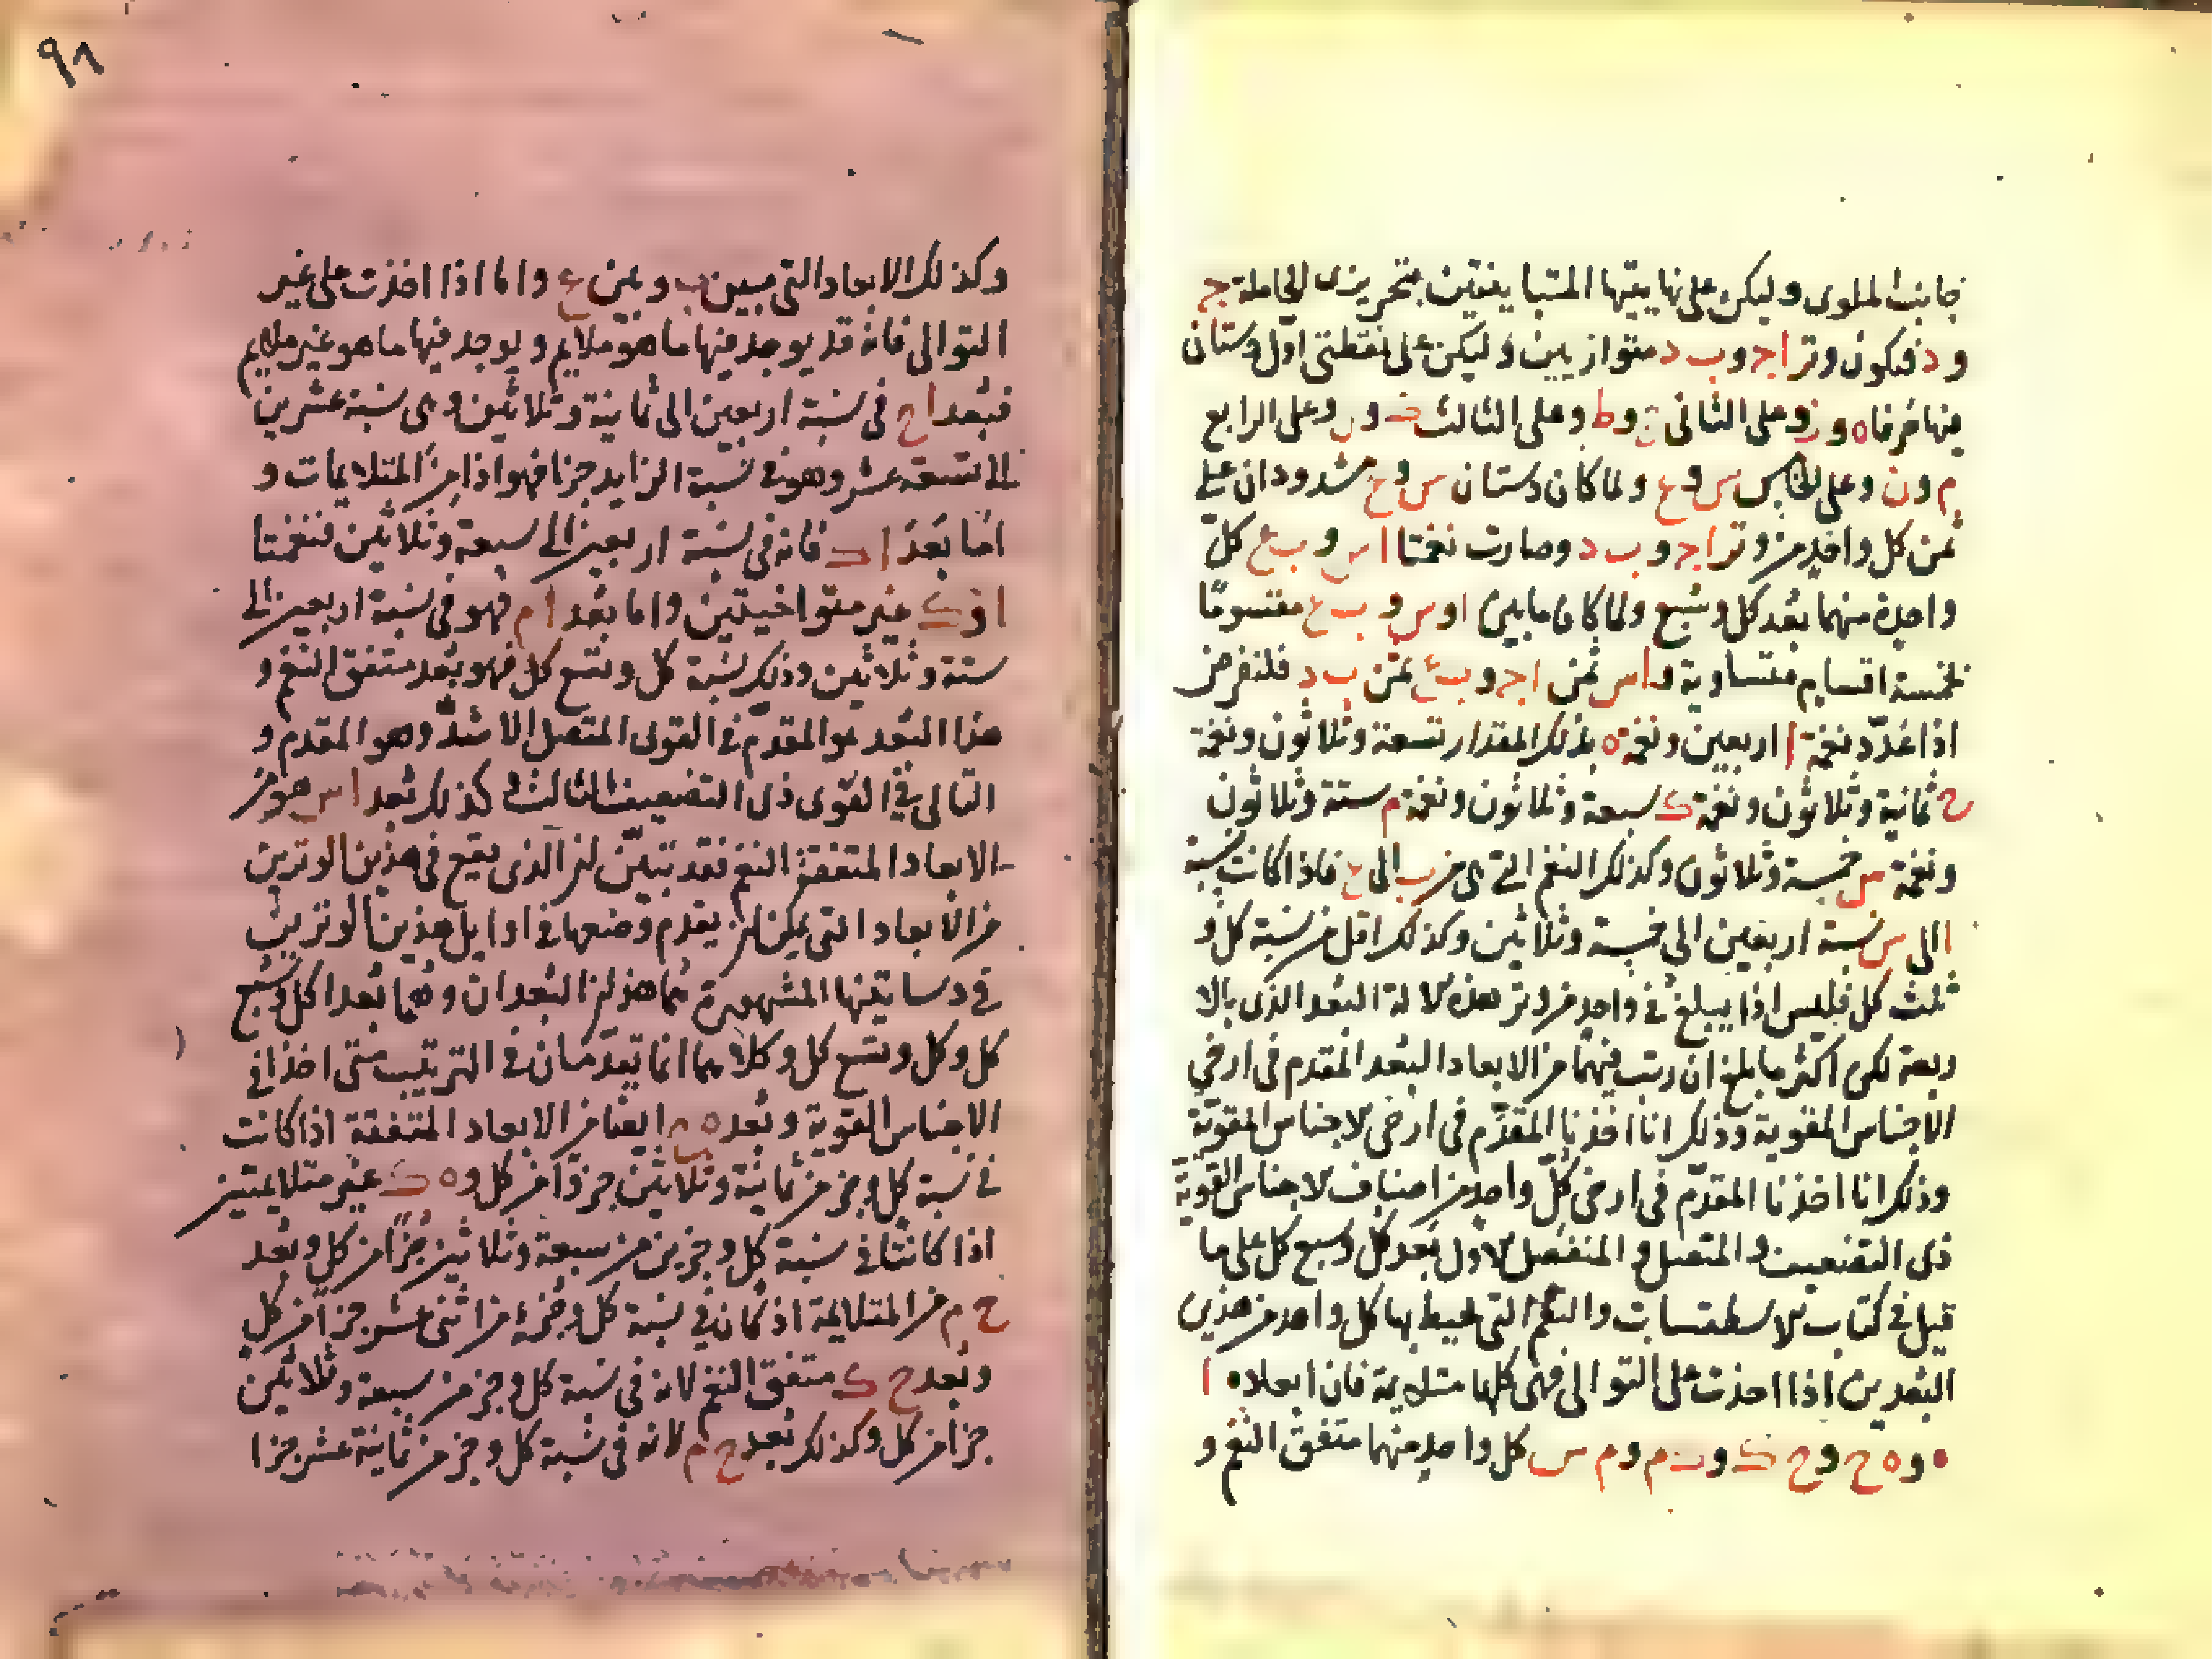 جانب الملوى وليكن على نهايتيها المتباينتين بتحزيزى الحاملة ج
و د فيكون وترا اج و ب د متوازيين وليكن على نقطتى اول دستان
منها حرفا ه و ز وعلى الثانى ح و ط وعلى الثالث ك و ل وعلى الرابع
م و ن وعلى الخامس س و ع ولما كان دستان س و ع مشدودان على
ثمن كل واحد من وتر اج و ب د وصارت نغمتا ا س و ب ع كل
واحدة منهما بعد كل وسبع ولما كان ما بين ا و س و ب ع مقسوما
بخمسة اقسام متساوية و ا س ثمن ا ج و ب ع ثمن ب د فلنفرض
اذا عدد نغمة ا اربعين ونغمة ه بذلك المقدار تسعة وثلاثون ونغمة
ح ثمانية وثلاثون ونغمة ك سبعة وثلاثون ونغمة م ستة وثلاثون
ونغمة س خمسة وثلاثون وكذلك النغم التى هى من ب الى ع فاذا كانت نسبة
ا الى س نسبة اربعين الى خمسة وثلاثين وكذلك اقل من نسبة كل و
ثلث كل فليس اذا يبلغ فى واحد من وتر هذه الالة البعد الذى بالا
ربعة لكن اكثر ما بلغ ان رتب فيهما من الابعاد البعد المقدم فى ارخى
الاجناس المقوية وذلك انا اخذنا المقدم فى ارخى الاجناس المقوية
وذلك انا اخذنا المقدم فى ارخى كل واحد من اصناف الاجناس القوية
ذى التضعيف والمتصل والمنفصل الاول بعد كل وسبع كل على ما
قيل فى كتاب الاسطقسات والنغم التى يحيط بها كل واحد من هذين
البعدين اذا اخذت على التوالى فهى كلها متلايمة فان ابعاد ا
ه و ه ح و ح ك و ك م و م س كل واحد منهما متفق النغم و
٩٦
وكذلك الابعاد التى مبين ب و بين ع واما اذا اخذت على غير
التوالى فانه قد يوجد منها ما هو ملايم ويوجد فيها ما هو غير ملايم
فبعد ا ح فى نسبة اربعين الى ثمانية وثلاثين وهى نسبة عشرين
الى تسعة عشر وهو فى نسبة الزايد جزءا فهو اذا من المتلايمات و
اما بعد ا ك فانه فى نسبة اربعين الى سبعة وثلاثين فنغمتا
ا و ك غير متواخيتين واما بعد ا م فهو فى نسبة اربعين الى
ستة وثلاثين وذلك نسبة كل وتسع كل فهو بعد متفق النغم و
هذا البعد هو المقدم فى القوى المتصل الاشد وهو المقدم و
التالى فى القوى ذى التضعيف الثالث وكذلك بعد ا س هو من
الابعاد المتفقة النغم فقد تبين لنا الذى يقع فى هذين الوترين
من الابعاد التى يمكن ان يقدم وضعها فى اوايل هذين الوترين
فى دساتينها المشهورة هما هذان البعدان وهما بعدا كل وسبع
كل وكل وتسع كل وكلاهما انما يتقدمان فى الترتيب متى اخذا فى
الاجناس القوية وبعد ه م ايضا من الابعاد المتفقة اذا كانت
فى نسبة كل وجز من ثمانية وثلاثين جزوا من كل و ه ك غير متلايمتين
اذا كانتا فى نسبة كل وجزين من سبعة وثلاثين جزا من كل وبعد
ح م من المتلايمة اذ كان فى نسبة كل وجزء من اثنى عشر جزا من كل
وبعد ح ك متفق النغم لانه فى نسبة كل وجز من سبعة وثلاثين
جزا من كل وكذلك بعد ح م لانه فى نسبة كل وجز من ثمانية عشر جزا